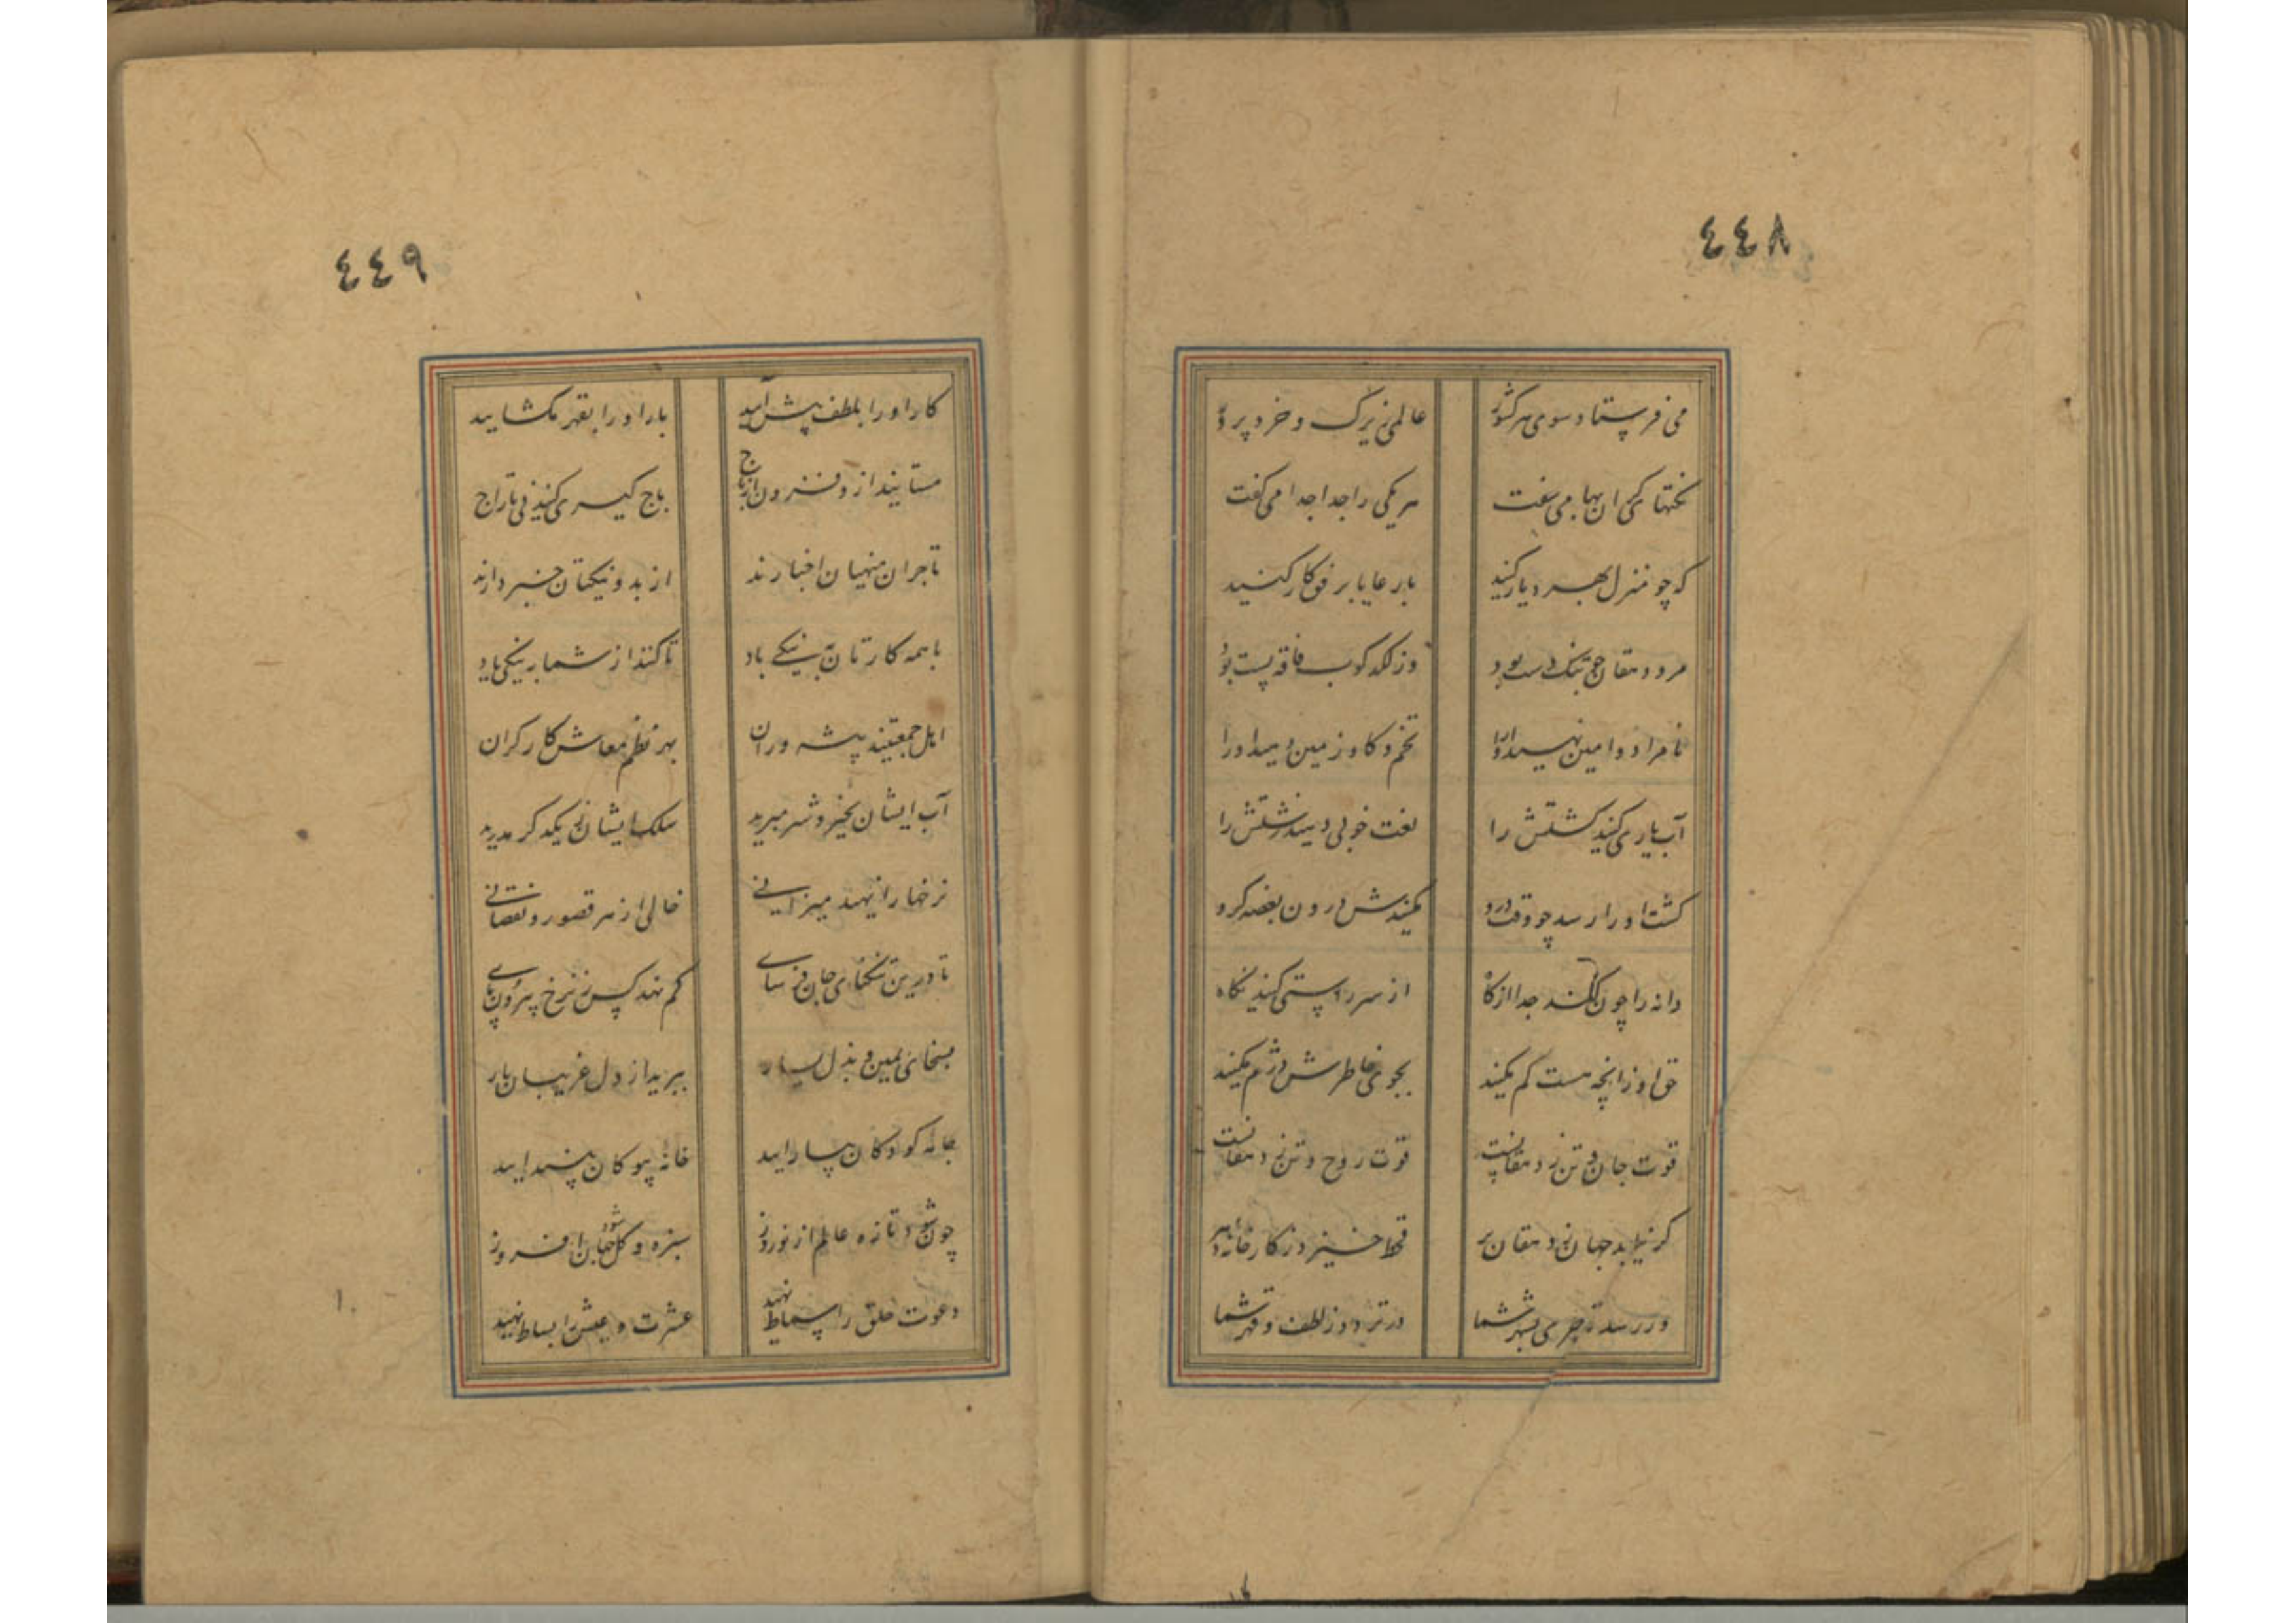 ٤٤٨
می فرستاد سوی هر کشور عالمی زیرک و خرد پرور
نکتهای گران بها می سفت هر یکی را جدا جدا می گفت
که چو منزل بهر دیار کنید با رعایا برفق کار کنید
مرد دهقان چو تنک دست بود وز لکد کوب فاقه پست بود
نامراد و امین نهید او را تخم و کاو و زمین دهید او را
آب یاری کنید کشتش را لغت خوبی دهید زشتش را
کشت او را رسد چو وقت درو مکنیدش درون بغصه کرو
دانه را چون کنند جدا از کاه از سر راستی کنید نکاه
حق او زانچه هست کم مکنید بجوی خاطرش دژم مکنید
قوت جان و تن ز دهقانست قوت روح و تن ز دهقانست
کر نیاید جهان ز دهقان بر قحط خیزد ز کارخانه دهر
ور رسد تاجری بشهر شما در تردد ز لطف و قهر شما
٤٤٩
کار او را بلطف پیش آیید بار او را بقهر مکشایید
مستانید ازو فزون از باج باج کیری کنید نی تاراج
تاجران منهیان اخبارند از بد و نیکتان خبر دارند
با همه کارتان به نیکی باد تا کنند از شما به نیکی یاد
اهل جمعیتند پیشه وران بهر نظم معاش کارکران
آب ایشان بخیر و شر مبرید سلک ایشان ز یکدکر مدرید
نرخها را نهید میزانی خالی از هر قصور و نقصانی
تا درین تنکنای جان فرسای کم نهد کس ز نرخ بیرون پای
بسخای یمین و بذل یسار ببرید از دل غریبان بار
جامه کودکان بیارایید خانه بیوکان بیندایید
چون شود تازه عالم از نوروز سبزه و کل شود جهان افروز
دعوت خلق را سماط نهید عشرت و عیش را بساط نهید